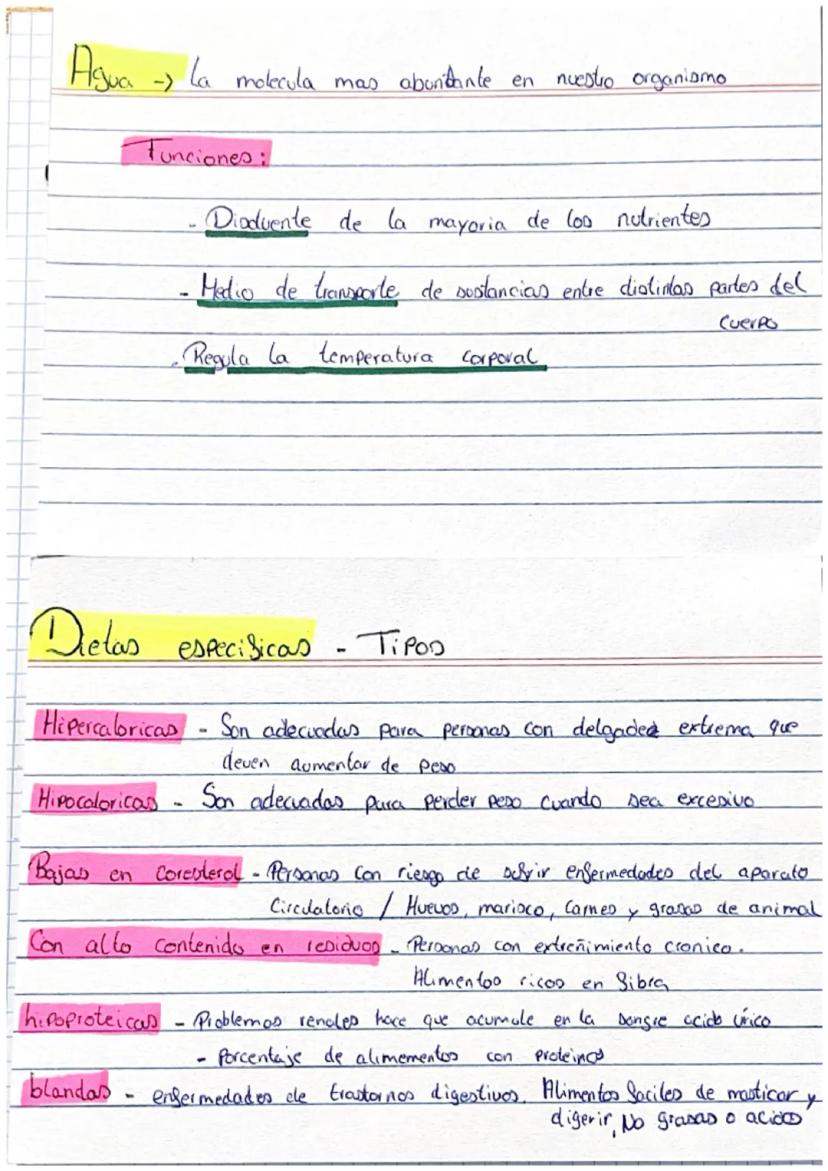 Agua -> La molecula mas abundante en nuestro organismo
Funciones:
- Disolvente de la mayoria de los nutrientes
- Medio de transporte de sustancias entre distintas partes del
cuerpo
- Regula la temperatura corporal
Dietas especificas - Tipos
Hipercaloricas - Son adecuadas para personas con delgadez extrema que
deven aumentar de peso
Hipocaloricas - Son adecuadas para perder peso cuando sea excesivo
Bajas en coresterol - Personas con riesgo de sufrir enfermedades del aparato
Circulatorio / Huevos, marisco, carnes y grasas de animal
Con alto contenido en residuos - Personas con extreñimiento cronico.
Alimentos ricos en fibra
hipoproteicas - Problemas renales hace que acumule en la sangre acido úrico
- Porcentaje de alimementos con proteinas
blandas - enfermedades de trastornos digestivos. Alimentos faciles de masticar y
digerir, No grasas o acidos